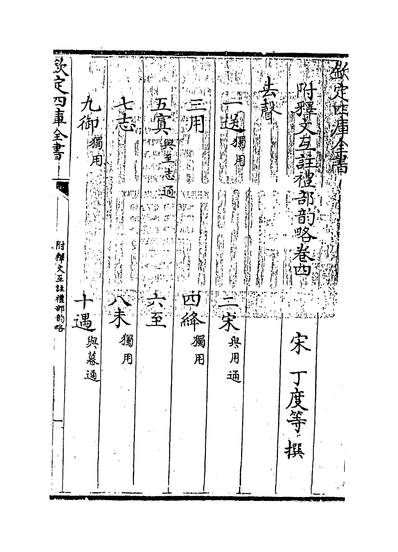 欽定四庫全書
附釋文互註禮部韻略卷四
宋 丁度等 撰
去聲
一送獨用 二宋與用通
三用 四絳獨用
五寘與至志通 六至
七志 八未獨用
九御獨用 十遇與暮通
欽定四庫全書
附釋文互註禮部韻略
一